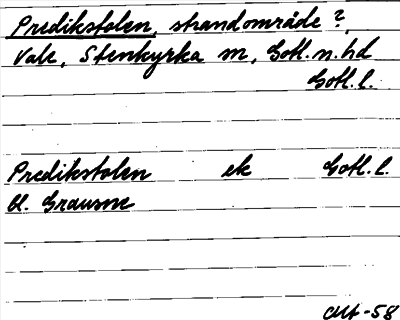 Predikstolen, strandområde?,
Vale, Stenkyrka sn, Gotl. n. hd
Gotl. l.
Predikstolen ek Gotl. l.
bl. Grausne
-58